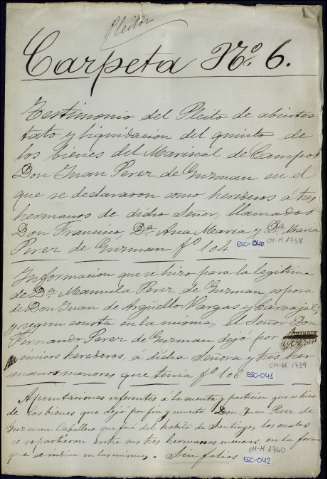 Pleitos
Carpeta Nº 6.
Testimonio del Pleito de abintes
tato y liquidacion del quinto de
los bienes del Mariscal de Campo
Don Juan Perez de Guzman en el
que se declararon como herederos a tres
hermanos de dicho Señor, llamados
Don Francisco, Dª Ana Maria y Dª Maria
Perez de Guzman fº 104 ESC-040 M-H 1738
Informacion que se hizo por la legitima
de Dª Manuela Perez de Guzman esposa
de Don Juan de Argüello Vargas y Carvajal
y segun consta en la misma, el Señor Dn
Fernando Perez de Guzman, dejo por
unicos herederos, a dicha Señora y tres
hermanos menores que tenia fº 106 ESC-041 M-H 1739
Apuntaciones referentes a la cuenta y particion que se hizo
de los bienes que dejo por su muerte Don Juan Perez de
Guzman Caballero que fue del habito de Santiago, los cuales
se repartieron entre sus tres hermanos, en la forma
que se indica en las mismas. Sin folias M-H 1740
ESC-042